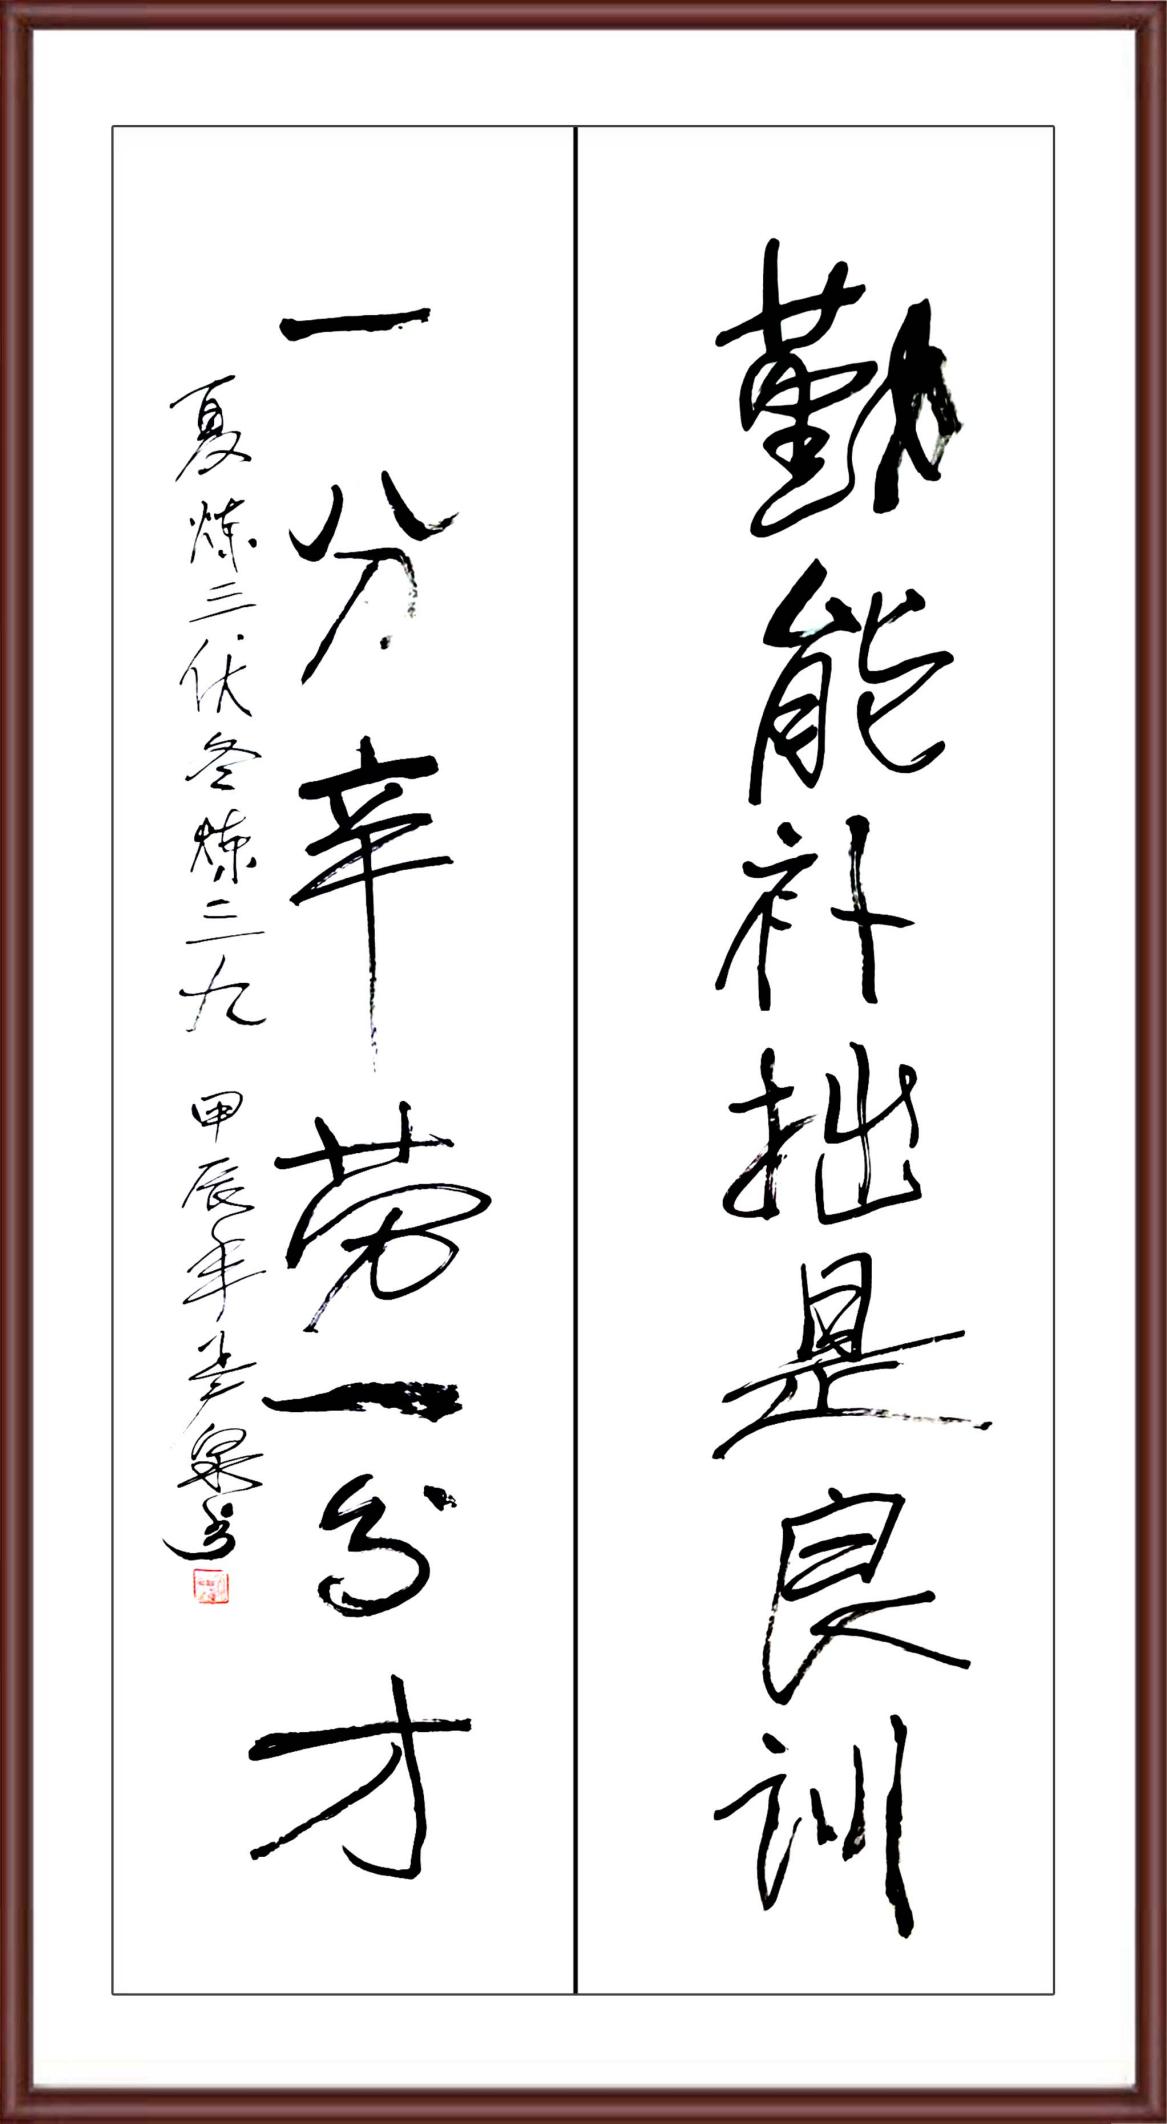 勤能补拙是良训
一分辛劳一分才
夏炼三伏冬炼三九 甲辰年